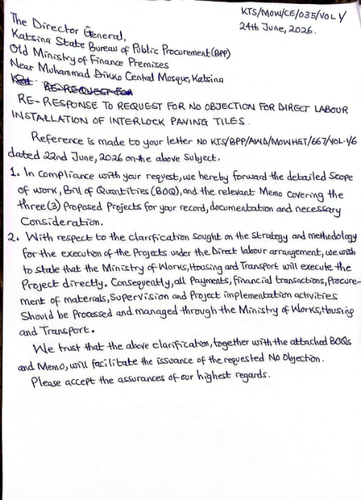 KTS/MOW/CE/035/VOL Y
24th June, 2026.
The Director General,
Katsina State Bureau of Public Procurement (BPP)
Old Ministry of Finance Premises
Near Muhammad Dikko Central Mosque, Katsina
RE-REQUEST FOR
RE- RESPONSE TO REQUEST FOR NO OBJECTION FOR DIRECT LABOUR
INSTALLATION OF INTERLOCK PAVING TILES.
Reference is made to your letter NO KTS/BPP/AWD/MOWHST/667/VOL.1/6
dated 22nd June, 2026 on the above subject.
1. In Compliance with your request, we hereby forward the detailed Scope
of work, Bill of Quantities (BOQ), and the relevant Memo covering the
three(3) Proposed Projects for your record, documentation and necessary
Consideration.
2. With respect to the clarification sought on the Strategy and methodology
for the execution of the Projects under the Direct Labour arrangement, we wish
to state that the Ministry of Works, Housing and Transport will execute the
Project directly. Consequently, all Payments, financial transactions, Procure-
ment of materials, Supervision and Project implementation activities
Should be Processed and managed through the Ministry of Works, Housing
and Transport.
We trust that the above clarification, together with the attached BOQs
and Memo, will facilitate the issuance of the requested No Objection.
Please accept the assurances of our highest regards.